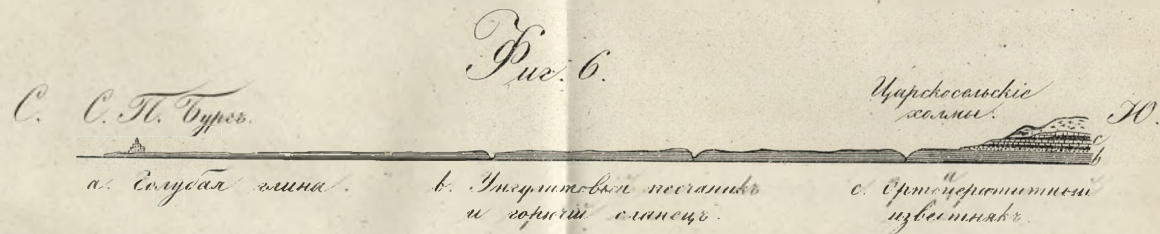 Фиг. 6.
С. С. П. Бургъ. Царскосельскіе холмы. Ю.
c
b
a. Голубая глина.
b. Унгулитовый песчаникъ
и горючій сланецъ.
c. Ортоцератитный
известнякъ.